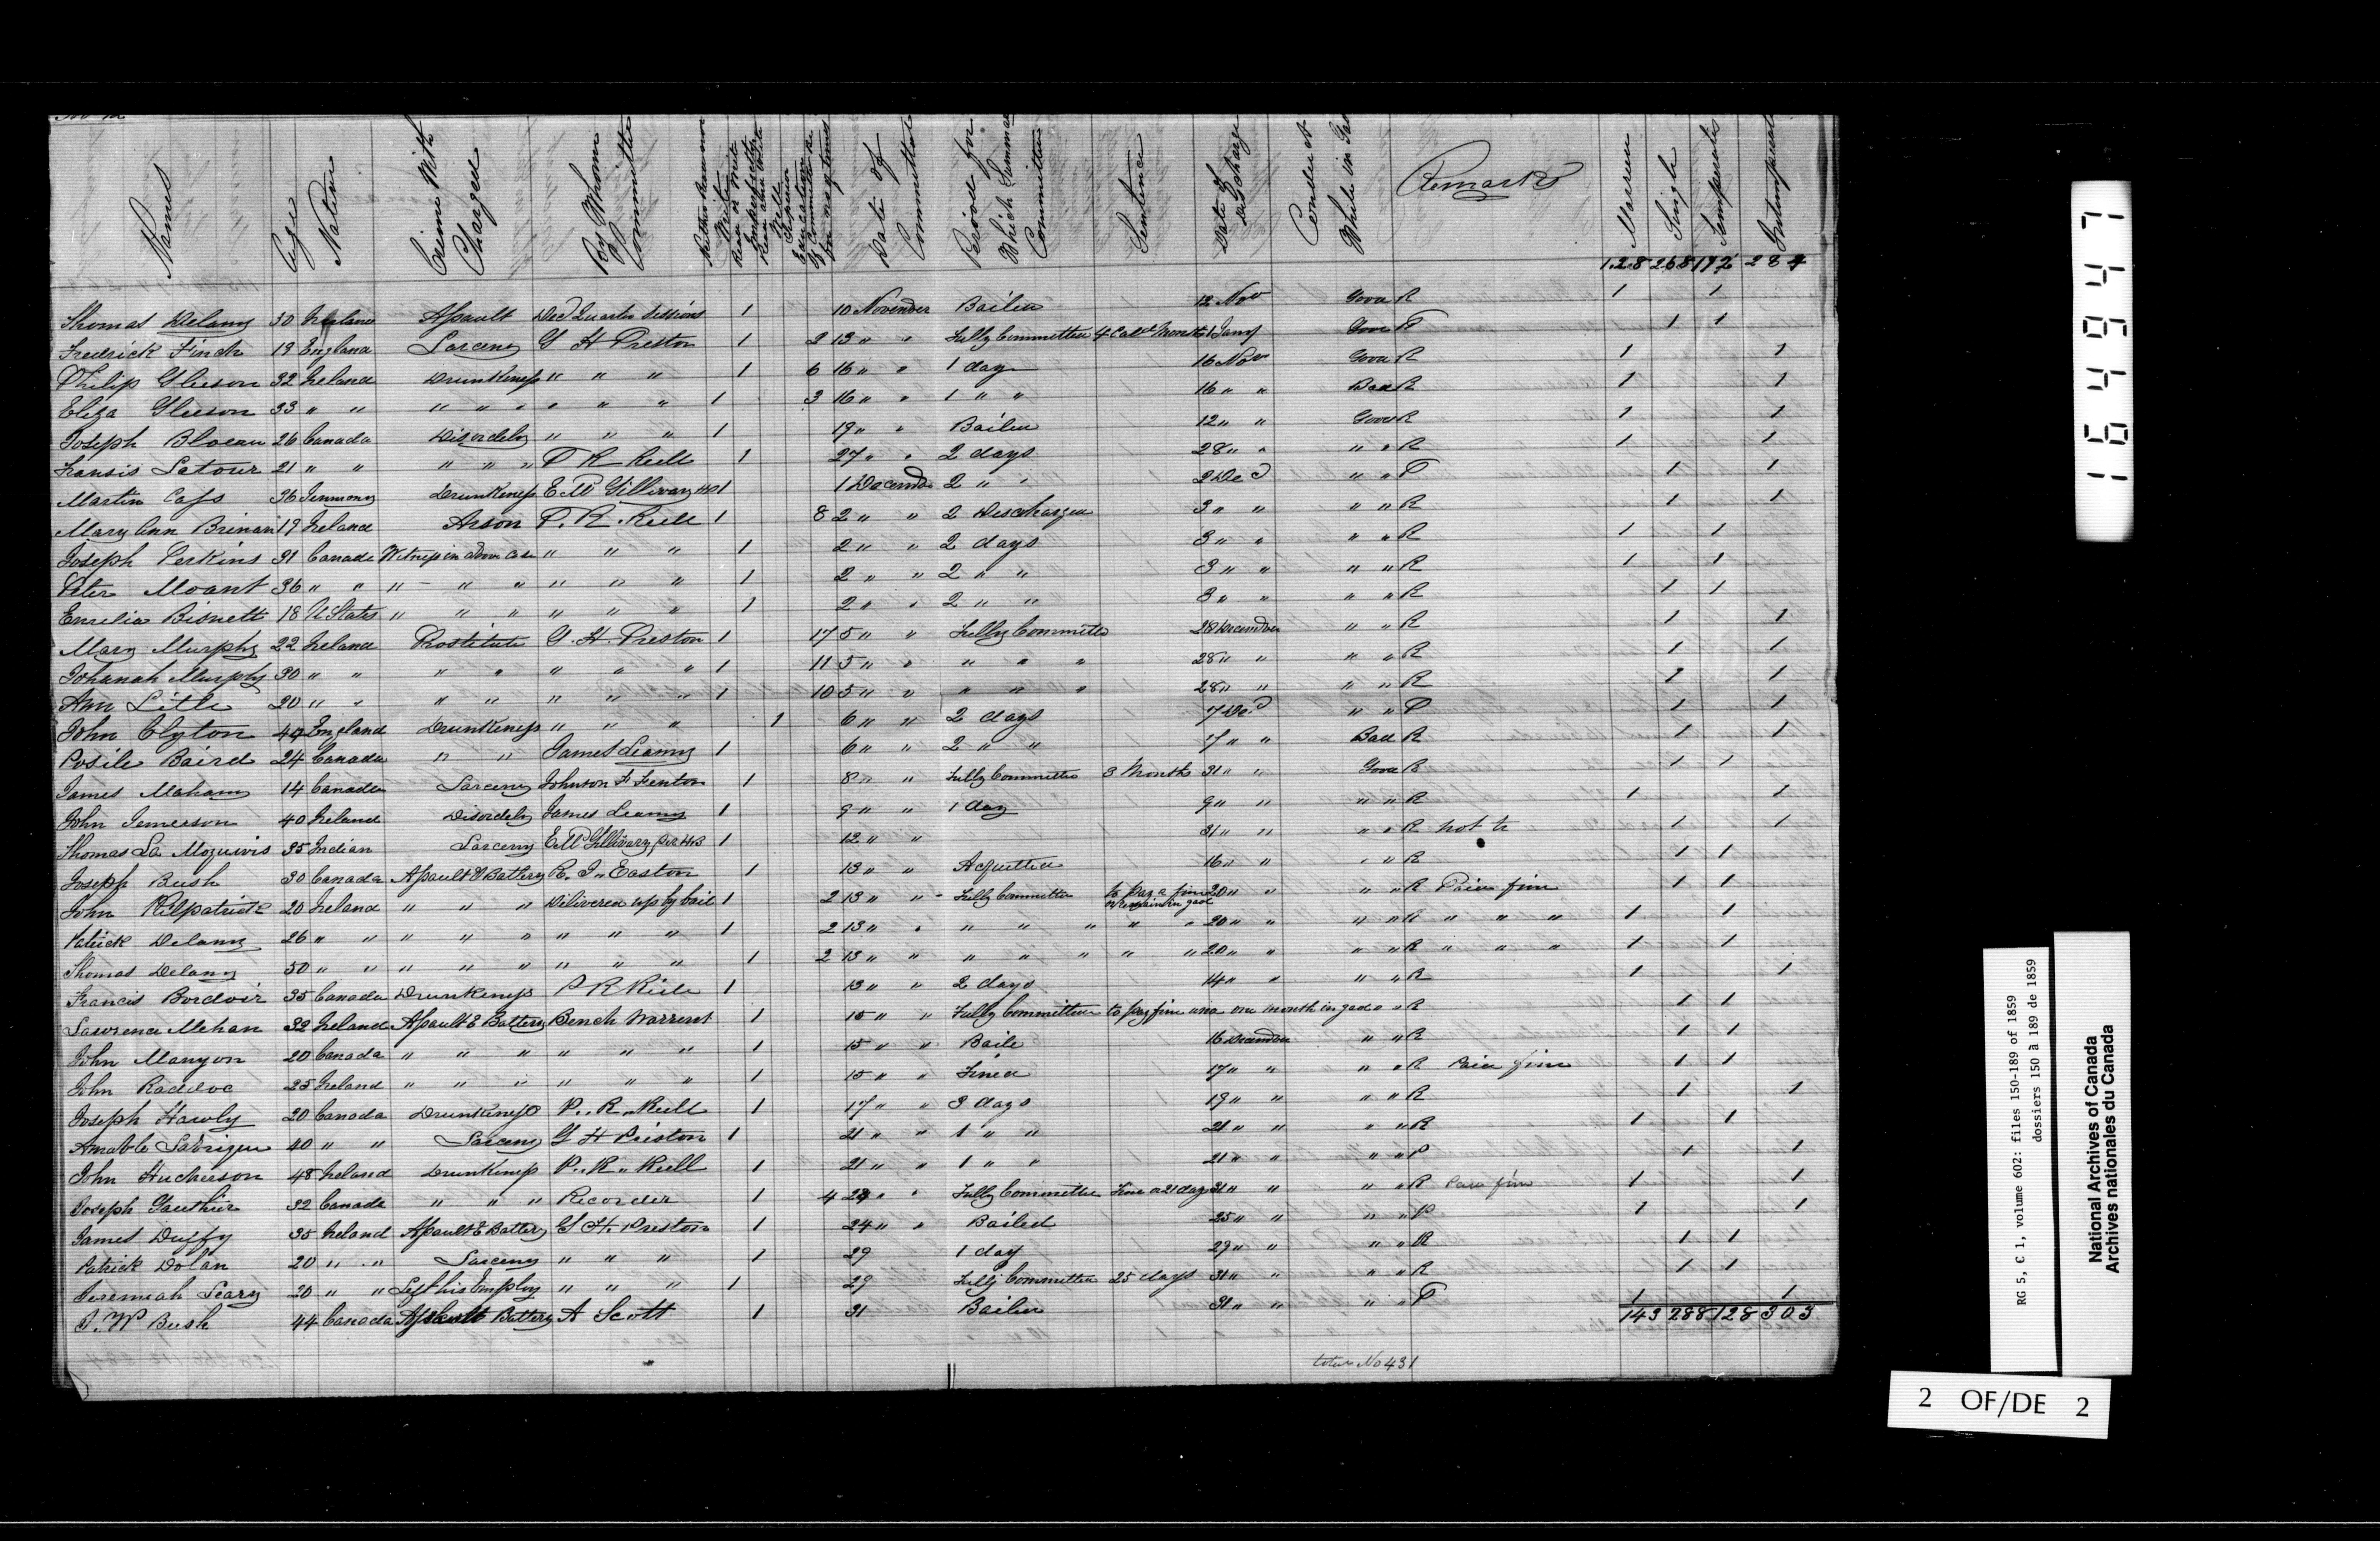 Names Age Native Crime With Charged By Whom Committed Neither Read nor Write Read or Write Imperfectly Read and Write Well Superior Education Date of Committal Period for Which Committed Sentence Date of Discharge Conduct While in Gaol Remarks Married Single Temperate Intemperate
128 268 284
Thomas Delany 30 Ireland Assault Quarter Sessions 1 10 November Bailed 12 Nov Good R 1 1
Fredrick Finch 19 England Larceny G H Preston 1 2 13 " " Fully Committed 4 Cald Months Good P 1 1
Philip Gleeson 32 Ireland Drunkeness " " " 1 6 16 " " 1 day 16 Nov Good R 1 1
Eliza Gleeson 33 " " " " " " " " 1 3 16 " " 1 " " 16 " " Bad R 1 1
Joseph Bloeau 26 Canada Disordely " " " 1 19 " " Bailed 12 " " Good R 1 1
Fransis Latour 21 " " " " " P R Reill 1 27 " " 2 days 28 " " " " R 1 1
Martin Cass 36 Jermony Drunkeness 1 1 December 2 " " 2 Dec " " P 1 1
Mary Ann Brinan 19 Ireland Arson P. R. Reill 1 8 2 " " 2 Discharged 3 " " " " R 1 1
Joseph Perkins 31 Canada Witness in above Case " " " 1 2 " " 2 days 3 " " " " R 1 1
Peter Moant 36 " " " " " " " " 1 2 " " 2 " " 3 " " " " R 1 1
Emelia Bisnett 18 U States " " " " " " 1 2 " " 2 " " 3 " " " " R 1 1
Mary Murphy 22 Ireland Prostitute G. H. Preston 1 17 5 " " Fully Committed 28 December " " R 1 1
Johanah Murphy 30 " " " " " " " 1 11 5 " " " " " 28 " " " " R 1 1
Ann Litle 20 " " " " " " " 1 10 5 " " " " " 28 " " " " R 1 1
John Clyton 44 England Drunkeness " " " 1 6 " " 2 days 7 Dec " " P 1 1
Posile Baird 24 Canada " " James Leamy 1 6 " " 2 " " 7 " " Bad R 1 1
James Mahany 14 Canada Larceny Johnson F Fenton 1 8 " " Fully Committed 3 Months 31 " " Good R 1 1
John Jemerson 40 Ireland Disordely James Leamy 1 9 " " 1 day 9 " " " " R 1 1
Thomas La Moquivis 35 Indian Larceny 1 12 " " 31 " " " " R not tr 1 1
Joseph Bush 30 Canada Assault & Battery E. J. Easton 1 13 " " Acquitted 16 " " " " R 1 1
John Kilpatrick 20 Ireland " " " Delivered up by bail 1 2 13 " " Fully Committed to pay a fine or remain in gaol 20 " " " " R Paid fine 1 1
Patrick Delany 26 " " " " " " " " 1 2 13 " " " " " " " 20 " " " " R " " " 1 1
Thomas Delany 50 " " " " " " " " 1 2 13 " " " " " " " 20 " " " " R " " " 1 1
Francis Bordoir 35 Canada Drunkeness P R Riele 1 13 " " 2 days 14 " " " " R 1 1
Lawrence Mehan 32 Ireland Assault & Battery Bench Warrent 1 15 " " Fully Committed to pay fine and one month in gaol " " R 1 1
John Manyon 20 Canada " " " " " " 1 15 " " Baile 16 December " " R 1 1
John Raddoc 25 Ireland " " " " " " 1 15 " " Fined 17 " " " " R Paid fine 1 1
Joseph Hawly 20 Canada Drunkeness P. R. Reill 1 17 " " 3 days 19 " " " " R 1 1
Amable Labrigue 40 " " Larceny G H Priston 1 21 " " 1 " " 21 " " " " R 1 1
John Hucherson 48 Ireland Drunkeness P. R. Reill 1 21 " " 1 " " 21 " " " " P 1 1
Joseph Gauthier 32 Canada " " " Recorder 1 4 23 " " Fully Committed Fine or 21 days 31 " " " " R Paid fine 1 1
James Duffy 35 Ireland Assault & Battery G H. Preston 1 24 " " Bailed 25 " " " " P 1 1
Patrick Dolan 20 " " Larceny " " " 1 29 1 day 29 " " " " R 1 1
Jeremiah Leary 20 " " Left his Employ " " " 1 29 Fully Committed 25 days 31 " " " " R 1 1
J. W Bush 44 Canada Assault Battery A Scott 1 31 Bailed 31 " " " " P 1 1
143 288 128 303
total No 431
164947
RG 5, C 1, volume 602: files 150-189 of 1859
dossiers 150 à 189 de 1859
National Archives of Canada
Archives nationales du Canada
2 OF/DE 2